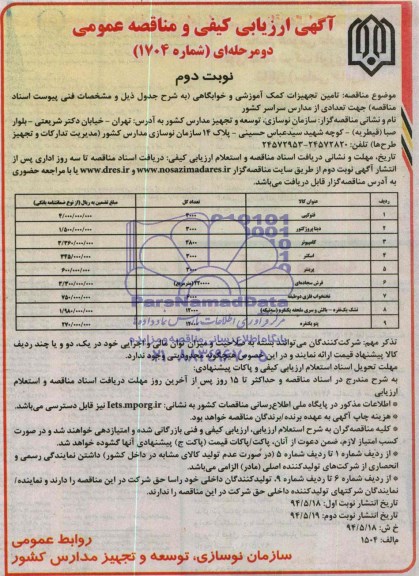 آگهی ارزیابی کیفی و مناقصه عمومی
دومرحله‌ای (شماره ۱۷۰۴)
نوبت دوم
موضوع مناقصه: تامین تجهیزات کمک آموزشی و خوابگاهی (به شرح جدول ذیل و مشخصات فنی پیوست اسناد
مناقصه) جهت تعدادی از مدارس سراسر کشور
نام و نشانی مناقصه‌گزار: سازمان نوسازی، توسعه و تجهیز مدارس کشور به آدرس: تهران - خیابان دکتر شریعتی - بلوار
صبا (قیطریه) - کوچه شهید سیدعباس حسینی - پلاک ۱۴ سازمان نوسازی مدارس کشور (مدیریت تدارکات و تجهیز
طرح‌ها) تلفن: ۲۴۵۷۲۸۲۰-۲۴۵۷۲۹۵۳
تاریخ، مهلت و نشانی دریافت اسناد مناقصه و استعلام ارزیابی کیفی: دریافت اسناد مناقصه تا سه روز اداری پس از
انتشار آگهی نوبت دوم از طریق سایت مناقصه‌گزار www.nosazimadares.ir و www.dres.ir و یا با مراجعه حضوری
به آدرس مناقصه‌گزار قابل دریافت می‌باشد.
ردیف عنوان کالا تعداد کل مبلغ تضمین به ریال (از نوع ضمانتنامه بانکی)
۱ فتوکپی ۲۰۰۰ ۴/۰۰۰/۰۰۰/۰۰۰
۲ دیتا پروژکتور ۲۰۰۰ ۱/۵۰۰/۰۰۰/۰۰۰
۳ کامپیوتر ۲۸۰۰
۴ اسکنر
۵ پرینتر ۲۰۰۰
۶ فرش سجاده‌ای
۷ تختخواب فلزی دوطبقه
۸ تشک یکنفره - بالش و سری ملحفه یکنفره ۱۲۰۰۰
۹ پتو یکنفره
ParsNamadData
پایگاه اطلاع‌رسانی مناقصه و مزایده
تذکر مهم: شرکت‌کنندگان می‌توانند بسته به صلاحیت و میزان توان مالی و اجرایی خود در یک، دو و یا چند ردیف
کالا پیشنهاد قیمت ارائه نمایند و در این خصوص هیچگونه محدودیتی وجود ندارد.
مهلت تحویل اسناد استعلام ارزیابی کیفی و پاکات پیشنهادی:
به شرح مندرج در اسناد مناقصه و حداکثر تا ۱۵ روز پس از آخرین روز مهلت دریافت اسناد مناقصه و استعلام
ارزیابی
* اطلاعات مذکور در پایگاه ملی اطلاع‌رسانی مناقصات کشور به نشانی: Iets.mporg.ir نیز قابل دسترسی می‌باشد.
* هزینه چاپ آگهی به عهده برنده/برندگان مناقصه خواهد بود.
* کلیه مناقصه‌گران به شرح استعلام ارزیابی، ارزیابی کیفی و فنی بازرگانی شده و امتیازدهی خواهند شد و در صورت
کسب امتیاز لازم، ضمن دعوت از آنان، پاکت/پاکات قیمت (پاکت ج) پیشنهادی آنها گشوده خواهد شد.
* از ردیف شماره ۱ تا ردیف شماره ۵ (در صورت عدم تولید کالای مشابه در داخل کشور) داشتن نمایندگی رسمی و
انحصاری از شرکت‌های تولیدکننده اصلی (مادر) الزامی می‌باشد.
* از ردیف شماره ۶ تا ردیف شماره ۹، تولیدکنندگان داخلی خود راسا حق شرکت در این مناقصه را دارند و نماینده/
نمایندگان شرکتهای تولیدکننده داخلی حق شرکت در این مناقصه را ندارند.
تاریخ انتشار نوبت اول: ۹۴/۵/۱۸
تاریخ انتشار نوبت دوم: ۹۴/۵/۱۹
خ ش: ۹۴/۵/۱۸
م‌الف: ۱۵۰۴
روابط عمومی
سازمان نوسازی، توسعه و تجهیز مدارس کشور